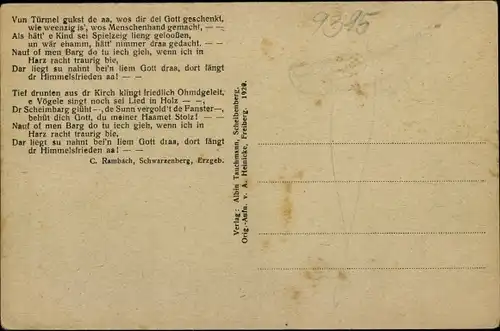 Vun Türmel gukst de aa, wos dir dei Gott geschenkt,
wie weenzig is', wos Menschenhand gemacht, — —
Als hätt' e Kind sei Spielzeig lieng gelooßen,
un wär ehamm, hätt' nimmer draa gedacht. — —
Nauf of men Barg do tu iech gieh, wenn ich in
Harz racht traurig bie,
Dar liegt su nahnt bei'n liem Gott draa, dort fängt
dr Himmelsfrieden aa! — —
Tief drunten aus dr Kirch klingt friedlich Ohmdgeleit,
e Vögele singt noch sei Lied in Holz — —,
Dr Scheimbarg glüht —, de Sunn vergold't de Fanster—,
behüt dich Gott, du meiner Haamet Stolz! — —
Nauf of men Barg do tu iech gieh, wenn ich in
Harz racht traurig bie.
Dar liegt su nahnt bei'n liem Gott draa, dort fängt
dr Himmelsfrieden aa! — —
C. Rambach, Schwarzenberg, Erzgeb.
Verlag: Albin Tauchmann, Scheibenberg.
Orig.-Aufn. v. A. Heinicke, Freiberg. 1920.
9395